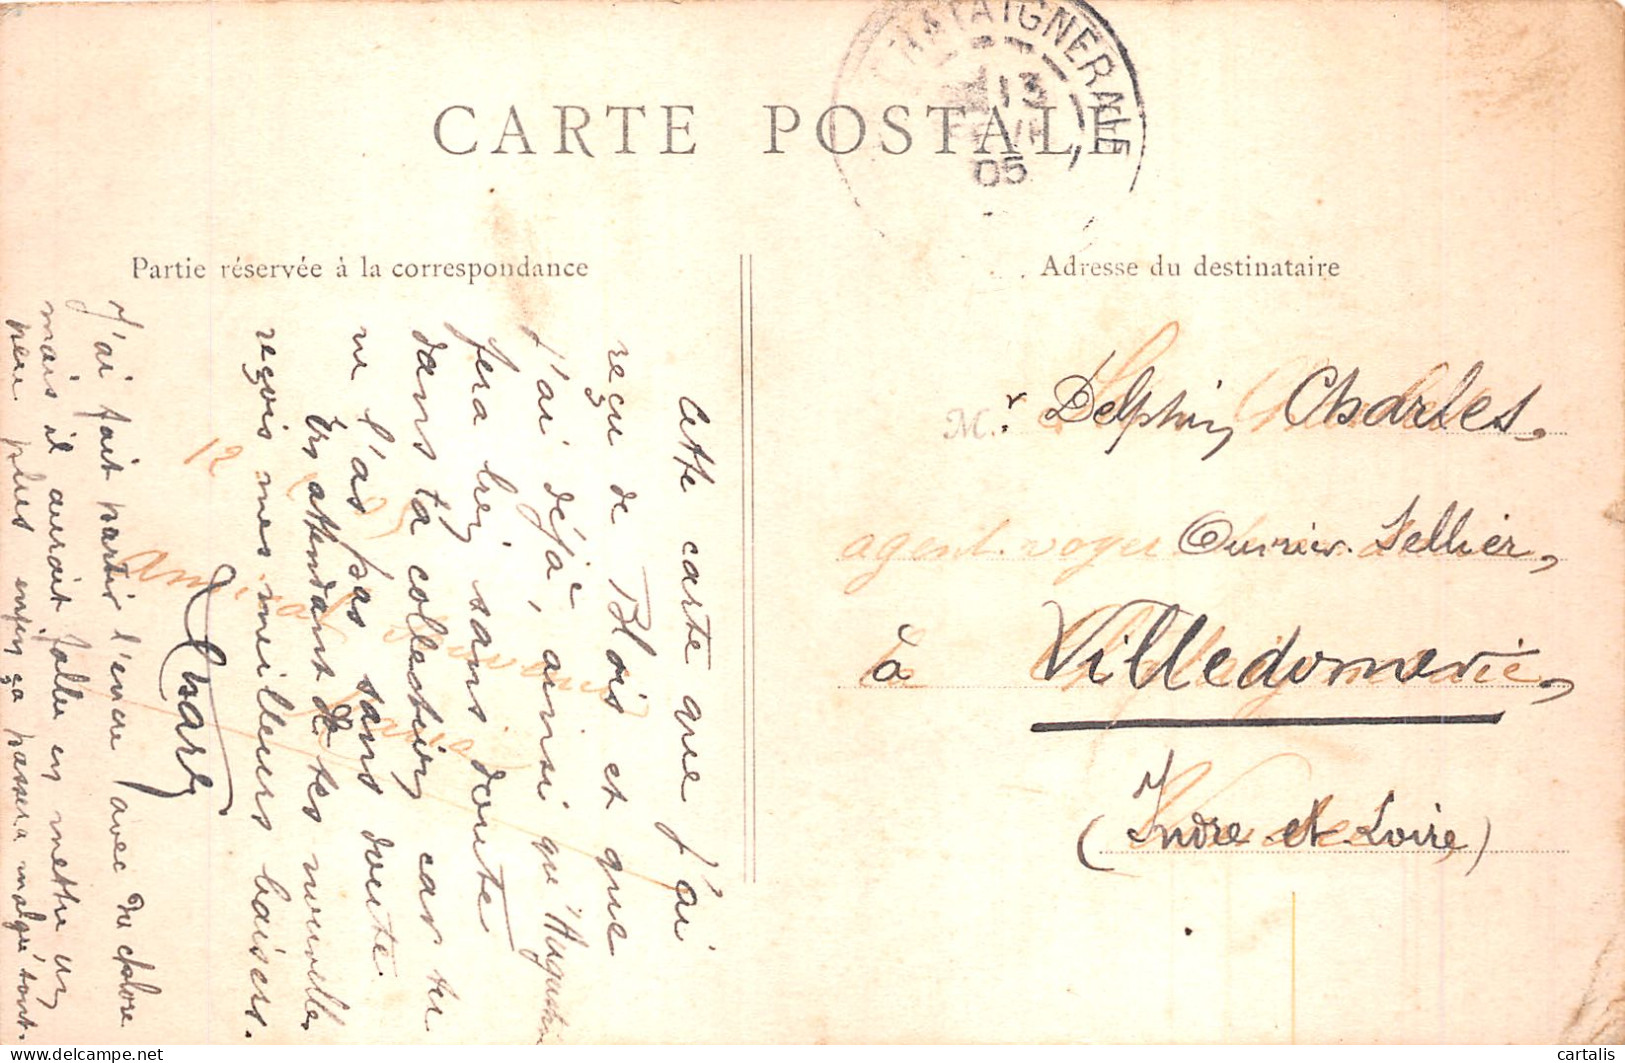 CARTE POSTALE
CHATAIGNERAIE
13
05
Partie réservée à la correspondance
Adresse du destinataire
Cette carte que j'ai
reçu de Blois et que
j'ai déjà, ainsi qu'Augustin
fera bien sans doute
dans ta collection car tu
ne l'as pas sans doute
En attendant de tes nouvelles
reçois mes meilleurs baisers.
Charles
J'ai fait partir l'encre avec du chlore
mais il aurait fallu en mettre un
peu plus enfin ça passera malgré tout.
12
Amical souvenir
M.r Delphin Charles,
agent-voyer
Ouvrier-Sellier,
à Villedomerie,
(Indre et Loire)
cartalis